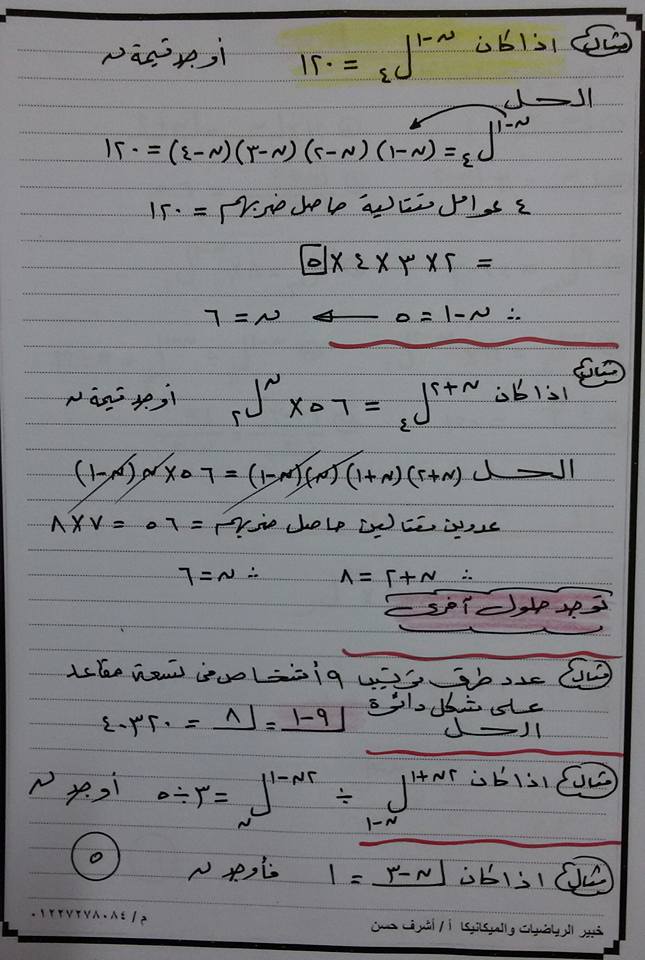 مثال اذا كان ^{ن-١}ل_٤ = ١٢٠ أوجد قيمة ن
الحل
^{ن-١}ل_٤ = (ن-١)(ن-٢)(ن-٣)(ن-٤) = ١٢٠
٤ عوامل متتالية حاصل ضربهم = ١٢٠
= ٢ × ٣ × ٤ × ٥
∴ ن-١ = ٥ ⟵ ن = ٦
مثال اذا كان ^{ن+٢}ل_٤ = ٥٦ × ^{ن}ل_٢ أوجد قيمة ن
الحل (ن+٢)(ن+١)(ن)(ن-١) = ٥٦ × ن(ن-١)
عددين متتالين حاصل ضربهم = ٥٦ = ٧ × ٨
∴ ن+٢ = ٨ ∴ ن = ٦
توجد حلول آخرى
مثال عدد طرق ترتيب ٩ أشخاص فى تسعة مقاعد
على شكل دائرة
الحل |٩-١ = |٨ = ٤٠٣٢٠
مثال اذا كان ^{٢ن+١}ل_{ن-١} ÷ ^{٢ن-١}ل_ن = ٣ ÷ ٥ أوجد ن
مثال اذا كان |ن-٣ = ١ فأوجد ن
٥
خبير الرياضيات والميكانيكا أ / أشرف حسن م / ٠١٢٢٧٢٧٨٠٨٤